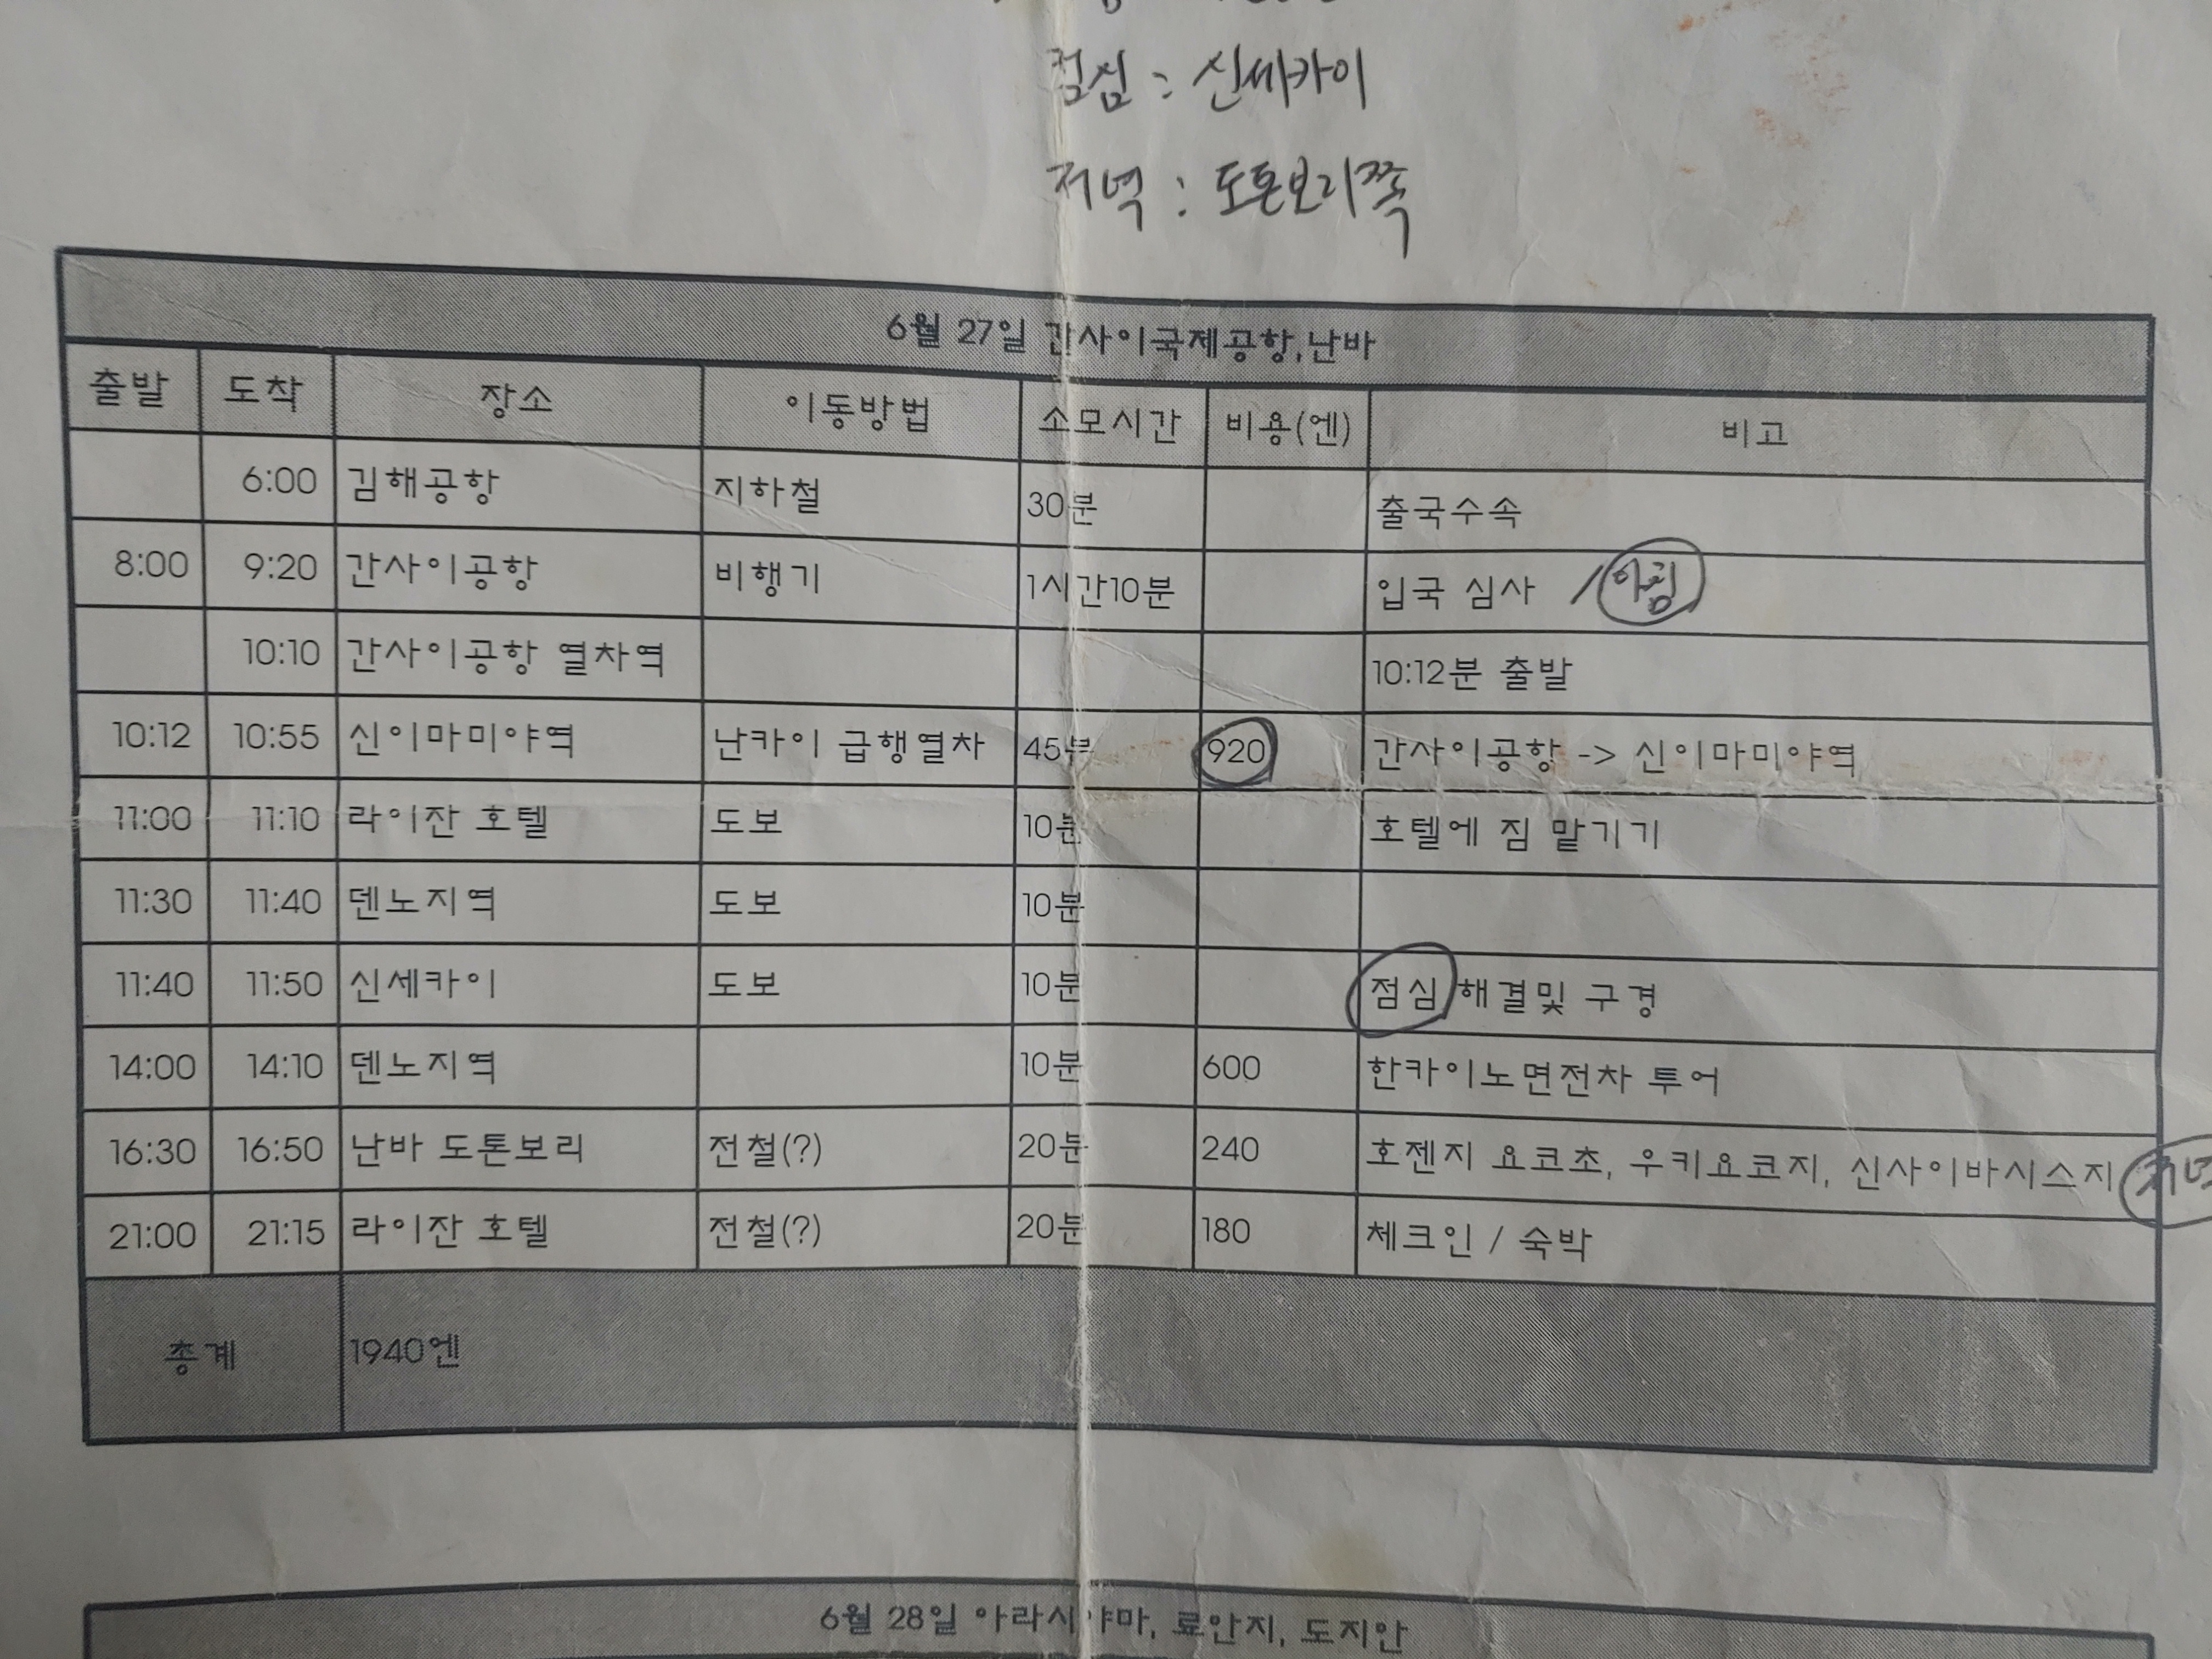 점심 : 신쎄카이
저녁 : 도톤보리쪽
6월 27일 간사이국제공항,난바
출발 도착 장소 이동방법 소모시간 비용(엔) 비고
6:00 김해공항 지하철 30분 출국수속
8:00 9:20 간사이공항 비행기 1시간10분 입국 심사 / 아침
10:10 간사이공항 열차역 10:12분 출발
10:12 10:55 신이마미야역 난카이 급행열차 45분 920 간사이공항 -> 신이마미야역
11:00 11:10 라이잔 호텔 도보 10분 호텔에 짐 맡기기
11:30 11:40 덴노지역 도보 10분
11:40 11:50 신세카이 도보 10분 점심 해결및 구경
14:00 14:10 덴노지역 10분 600 한카이노면전차 투어
16:30 16:50 난바 도톤보리 전철(?) 20분 240 호젠지 요코초, 우키요코지, 신사이바시스지 저녁
21:00 21:15 라이잔 호텔 전철(?) 20분 180 체크인 / 숙박
총계 1940엔
6월 28일 아라시야마, 료안지, 도지안